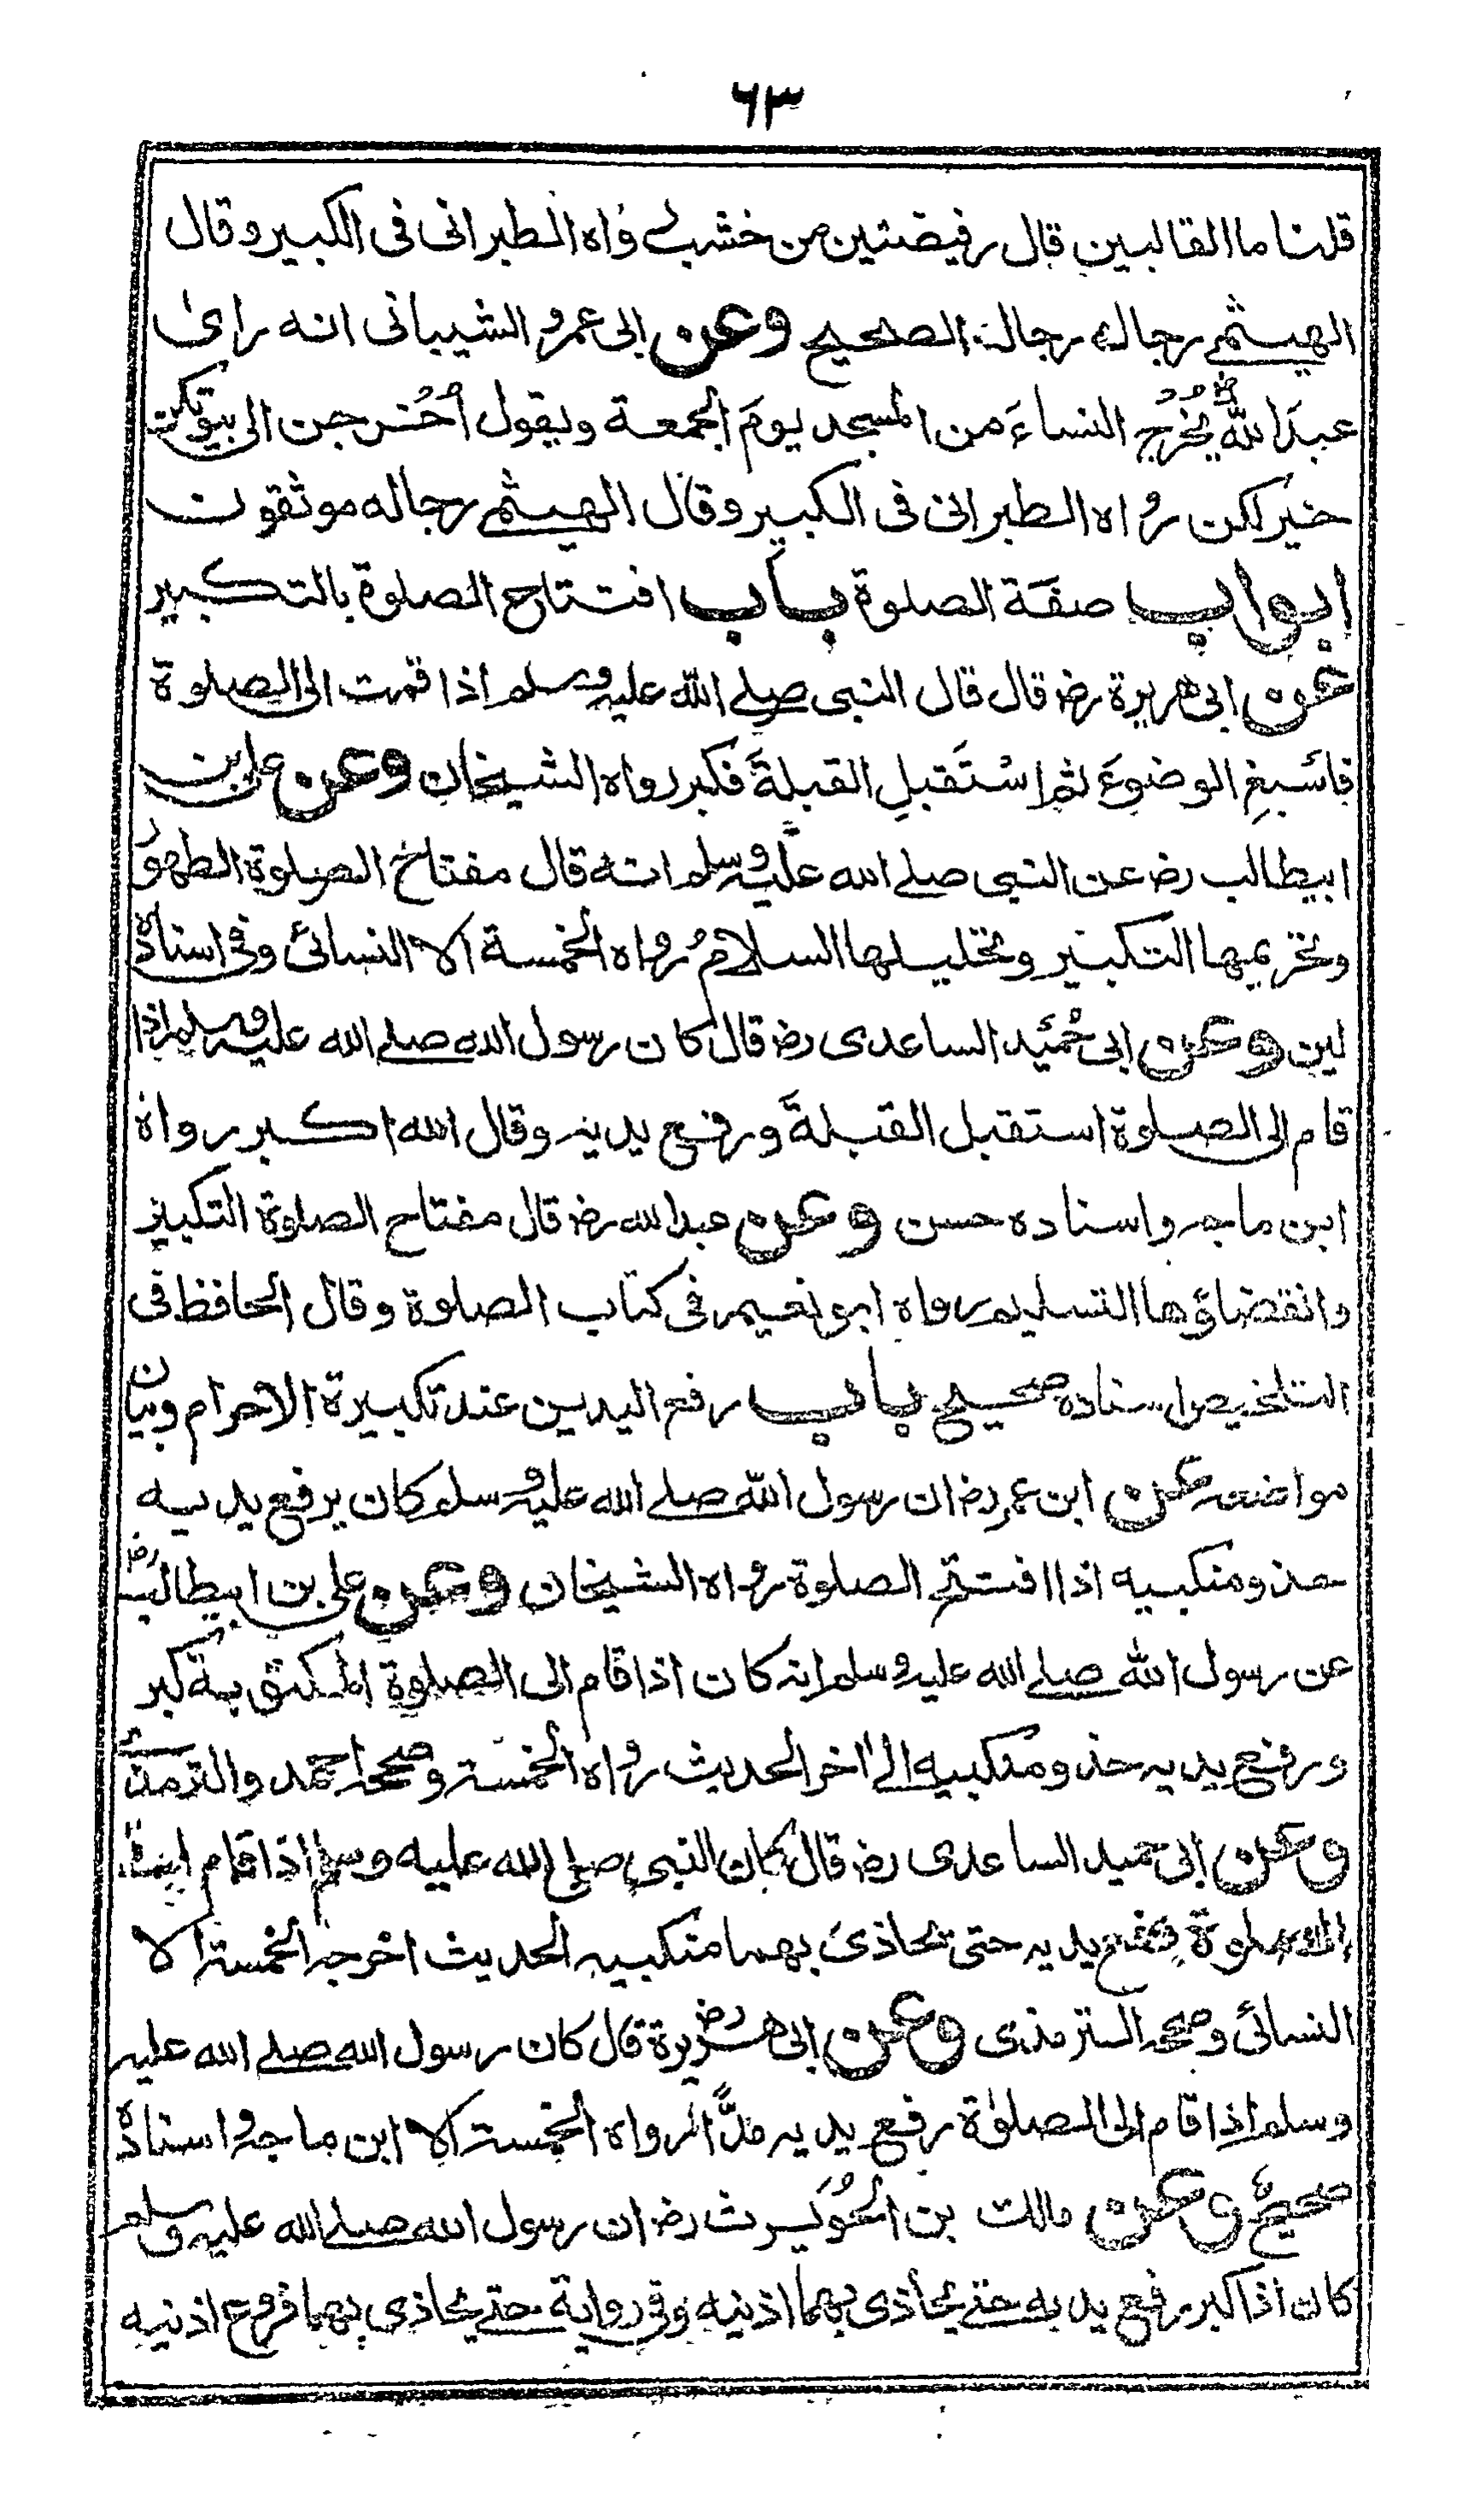 ٦٣
قلنا ما القالبين قال رفيضتين من خشب رواه الطبرانى فى الكبير وقال
الهيثمى رجاله رجال الصحيح وعن ابى عمرو الشيبانى انه راى
عبدَ الله رض يُخْرِجُ النساءَ من المسجد يومَ الجمعة ويقول اُخْرجن الى بيوتكن
خير لكن رواه الطبرانى فى الكبير وقال الهيثمى رجاله موثقون
ابواب صفة الصلوة باب افتتاح الصلوة بالتكبير
عن ابى هريرة رض قال قال النبى صلى الله عليه وسلم اذا قمت الى الصلوة
فاَسْبِغِ الوضوءَ ثم اسْتَقبلِ القبلةَ فكبر رواه الشيخان وعن على بن
ابيطالب رض عن النبى صلے الله عليه وسلم انه قال مفتاح الصلوة الطهور
وتحريمها التكبير وتحليلها السلامُ رواه الخمسة الا النسائى وفى اسناده
لين وعن ابى حُمَيد الساعدى رض قال كان رسول الله صلے الله عليه وسلم اذا
قام الى الصلوة استقبل القبلةَ ورفع يديه وقال الله اكبر رواه
ابن ماجه واسناده حسن وعن عبد الله رض قال مفتاح الصلوة التكبير
وانقضاؤها التسليم رواه ابو نعيم فى كتاب الصلوة وقال الحافظ فى
التلخيص اسناده صحيح باب رفع اليدين عند تكبيرة الاحرام وبيان
مواضعه عن ابن عمر رض ان رسول الله صلے الله عليه وسلم كان يرفع يديه
حذو منكبيه اذا افتتح الصلوة رواه الشيخان وعن على بن ابيطالب رض
عن رسول الله صلے الله عليه وسلم انه كان اذا قام الى الصلوة المكتوبة كبر
ورفع يديه حذو منكبيه الى اخر الحديث رواه الخمسة وصححه احمد والترمذى
وعن ابى حميد الساعدى رض قال كان النبى صلى الله عليه وسلم اذا قام
الى الصلوة يرفع يديه حتى يحاذى بهما منكبيه الحديث اخرجه الخمسة الا
النسائى وصححه الترمذى وعن ابى هريرة رض قال كان رسول الله صلے الله عليه
وسلم اذا قام الى الصلوٰة رفع يديه مدًّا رواه الخمسة الا ابن ماجه واسناده
صحيح وعن مالك بن الحُوَيرث رض ان رسول الله صلے الله عليه وسلم
كان اذا كبر رفع يديه حتے يحاذى بهما اذنيه وفى رواية حتے يحاذى بهما فروع اذنيه